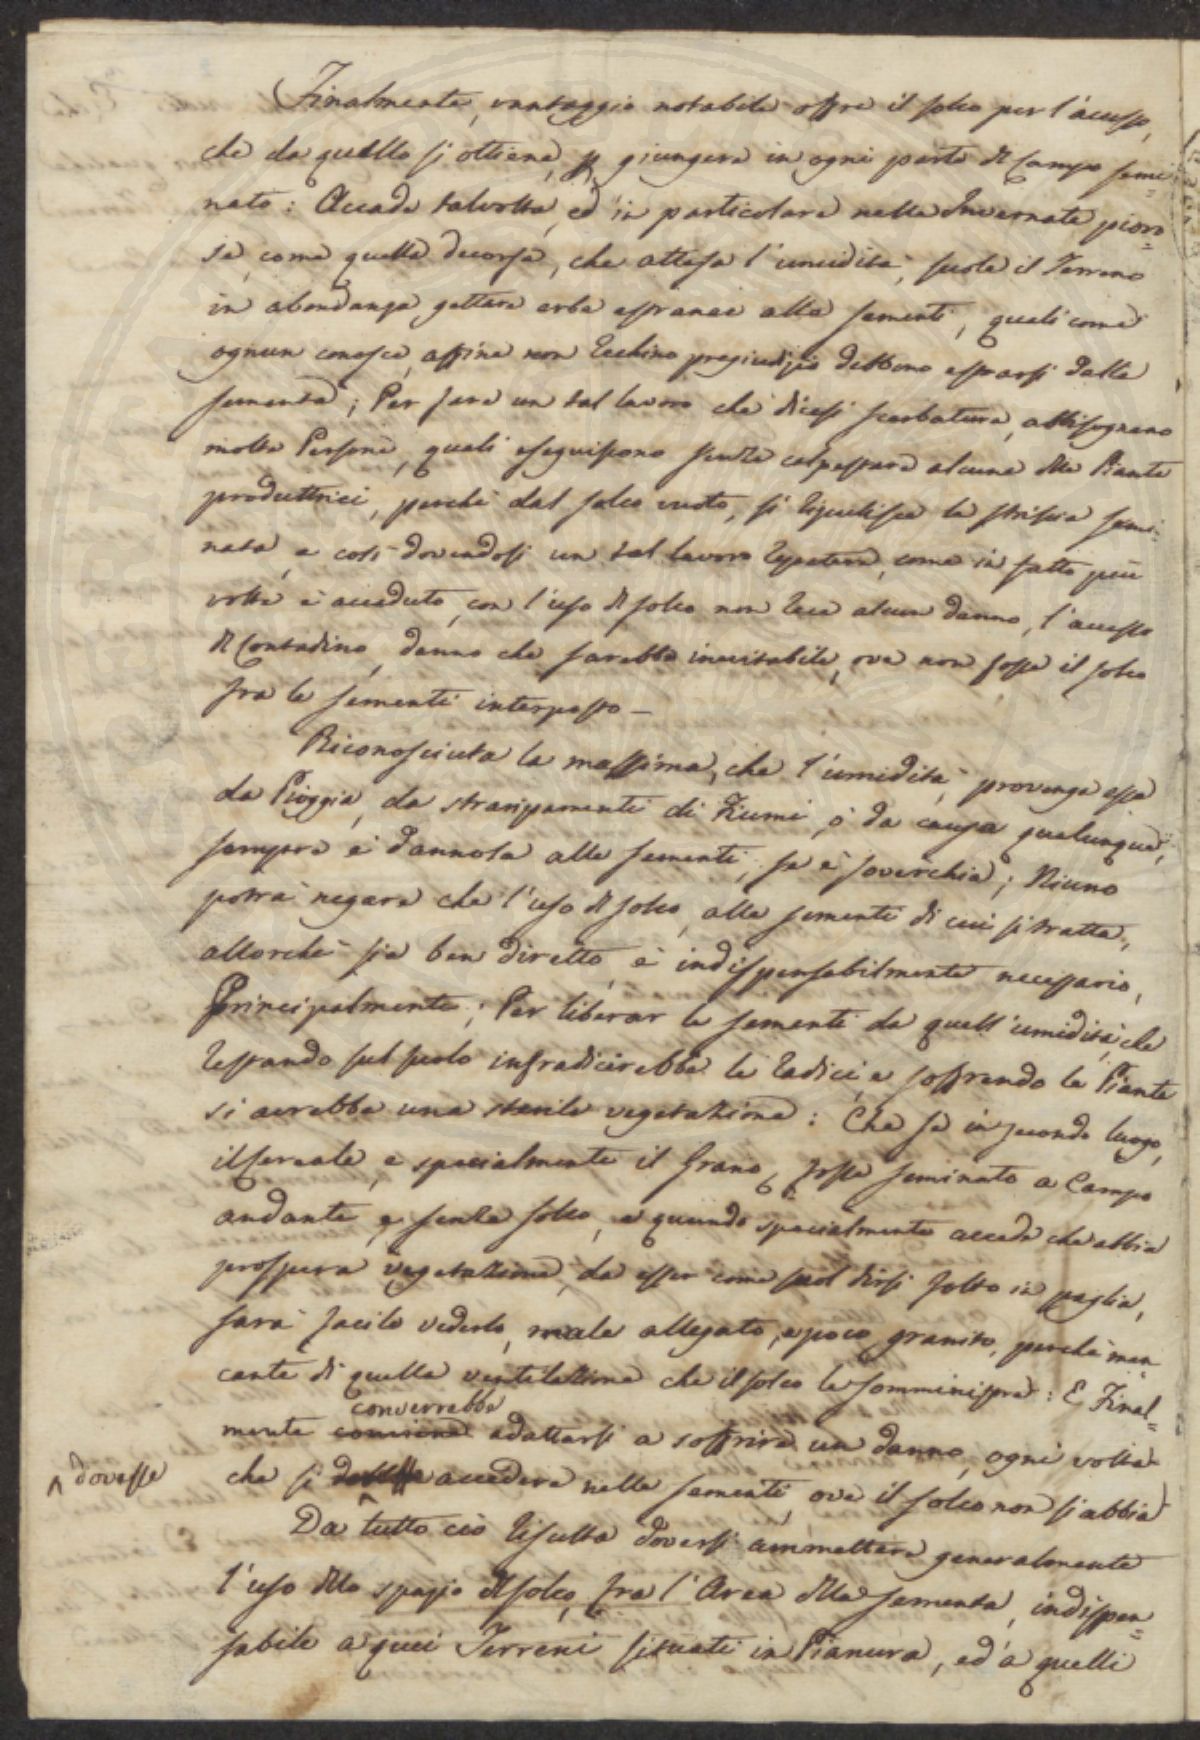 Finalmente, vantaggio notabile offre il solco per l'accesso,
che da quello si ottiene, p giungere in ogni parte del Campo semi=
nato: Accade talvolta, ed in particolare nelle Invernate piovo=
se, come quella decorsa, che attesa l'umidità, suole il Terreno
in abondanza gettare erbe estranee alle sementi, quali come
ognun conosce, affine non rechino pregiudizio debbono estrarsi dalla
sementa; Per fare un tal lavoro che dicesi scerbatura, abbisognano
molte Persone, quali eseguiscono senza calpestare alcuna delle Piante
produttrici, perchè dal solco vuoto, si ripulisce la striscia semi=
nata, e così dovendosi un tal lavoro ripetere, come in fatto più
volte è accaduto, con l'uso del solco non reca alcun danno, l'accesso
del Contadino, danno che sarebbe inevitabile, ove non fosse il solco
fra le sementi interposto —
Riconosciuta la massima, che l'umidità, provenga essa
da Pioggia, da straripamenti di Fiumi, o da causa qualunque,
sempre è dannosa alle sementi, se è soverchia; Niuno
potrà negare che l'uso del solco, alle sementi di cui si tratta,
allorchè sia ben diretto, è indispensabilmente necessario,
Principalmente; Per liberar le sementi da quell'umidità, che
restando sul suolo infradicirebbe le radici, e soffrendo le Piante
si avrebbe una sterile vegetazione: Che se in secondo luogo,
il cereale, e specialmente il Grano, fosse seminato a Campo
andante, e senza solco, e quando specialmente accada che abbia
prospera vegetazione, da esser come suol dirsi folto in paglia,
sarà facile vederlo, male allegato, e poco granito, perchè man=
cante di quella ventilazione che il solco le somministra: E Final=
converrebbe
mente conviene adattarsi a soffrire un danno, ogni volta
^ dovesse
che si accedere nelle sementi, ove il solco non si abbia
Da tutto ciò risulta doversi ammettere generalmente
l'uso dello spazio del solco, fra l'Area della sementa, indispen=
sabile a quei Terreni situati in Pianura, ed a quelli